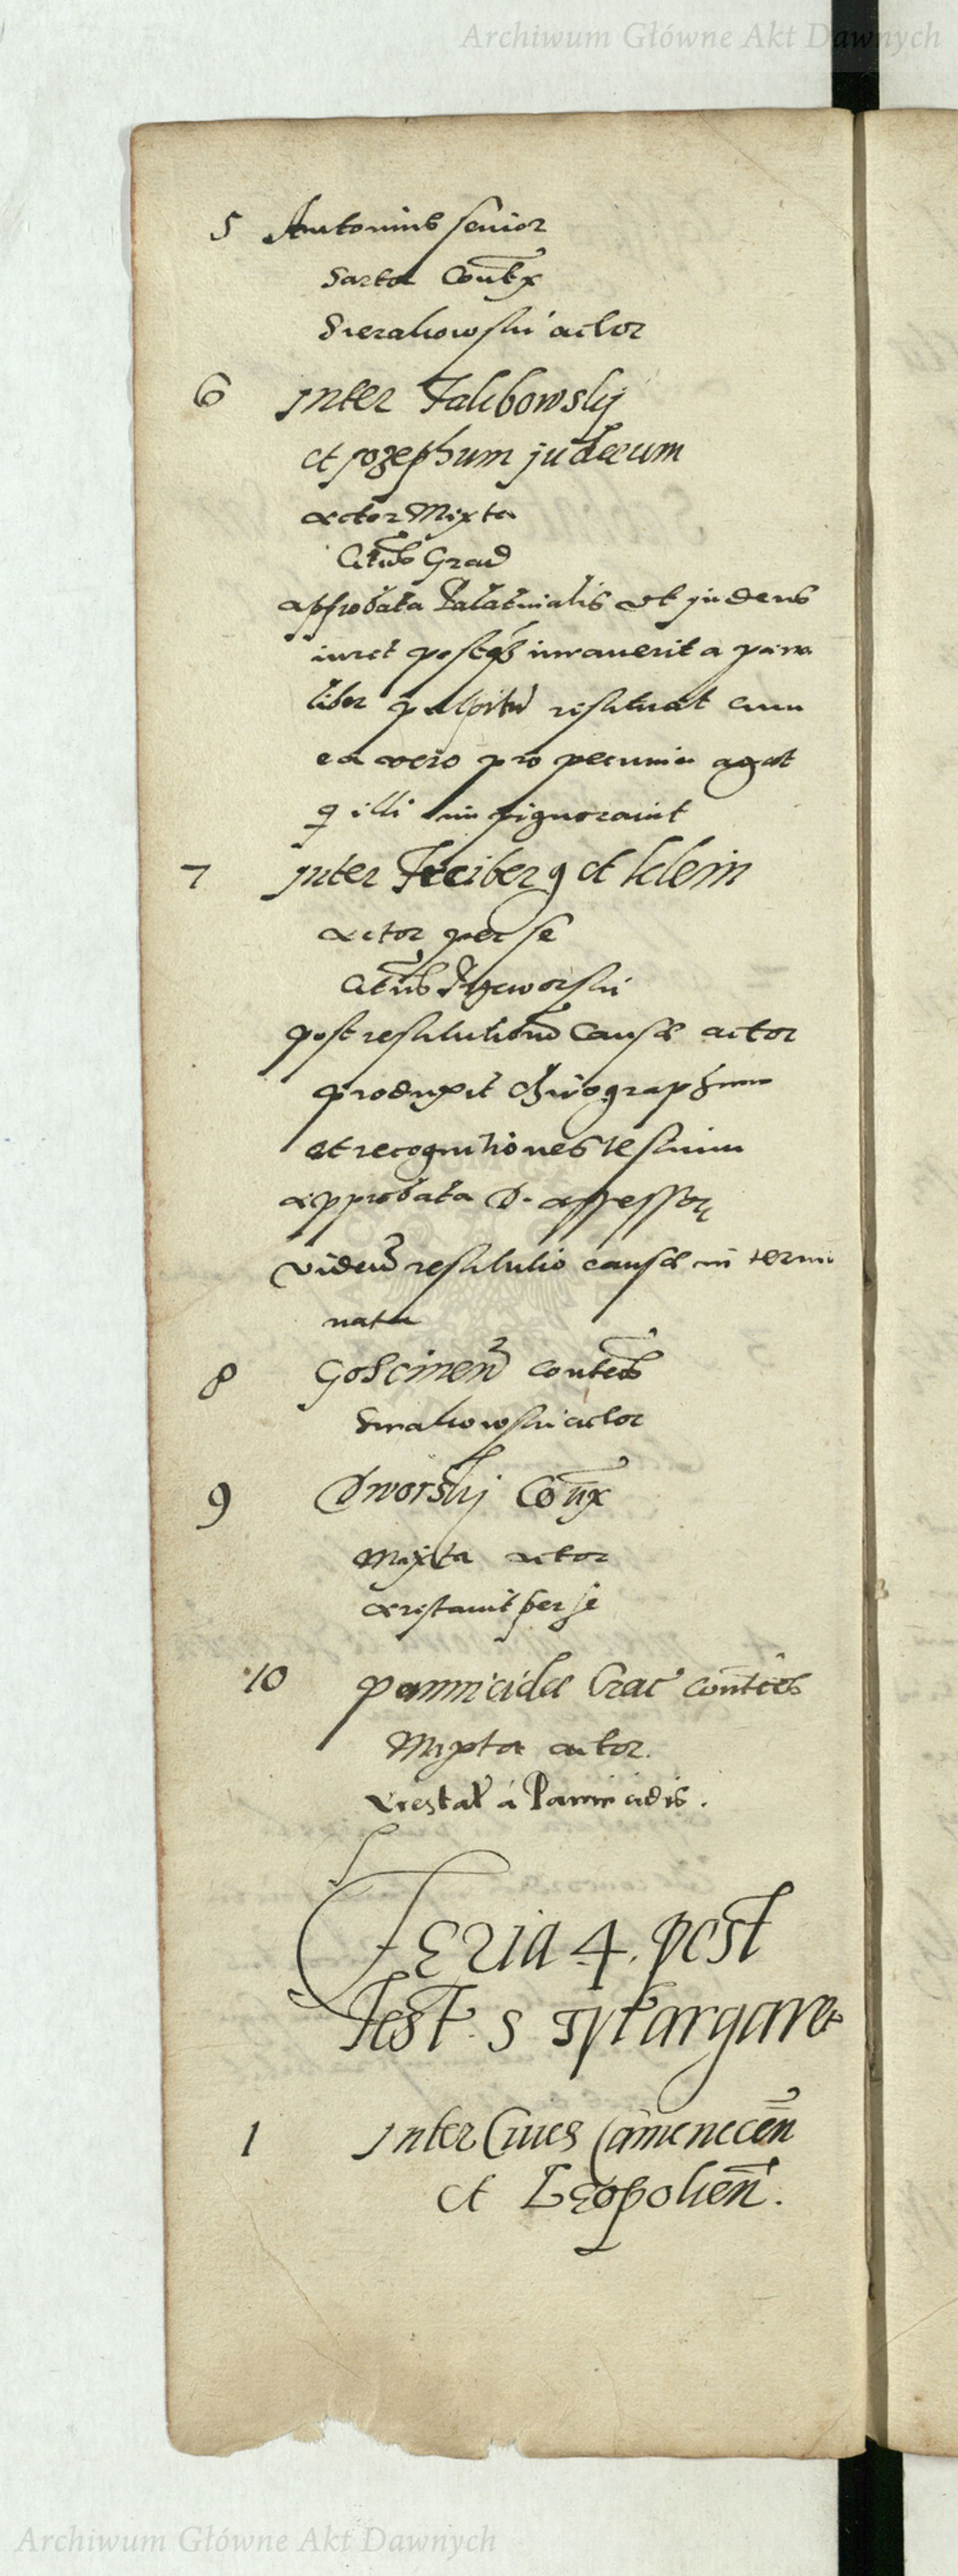 Archiwum Główne Akt Dawnych
5 Antonius senior
Sartor
Sierakowski actor
6 Inter Falibowskij
et Jozephum judaeum
actor Mixta
Citus Grad
approbata Palatinalis ut judeus
iuret iurauerit a
liber restituat cum
ea vero pro pecunia agat
q illi impignorauit
7 Inter Freiberg et klein
actor per se
Citus
post restitutionem causae actor
produxit chirographum
et recognitiones testium
approbata D. assessor
videtur restitutio causae in termi
nata
8 Goscinen contes
Sirakowski actor
9 Dworskij
Mixta actor
arestauit per se
10 pannicidae Crac contes
Mixta actor.
arestat a Pannicidis.
Feria 4. post
fest. S Margare
1 Inter Ciues Camenecen
et Leopolien.
Archiwum Główne Akt Dawnych